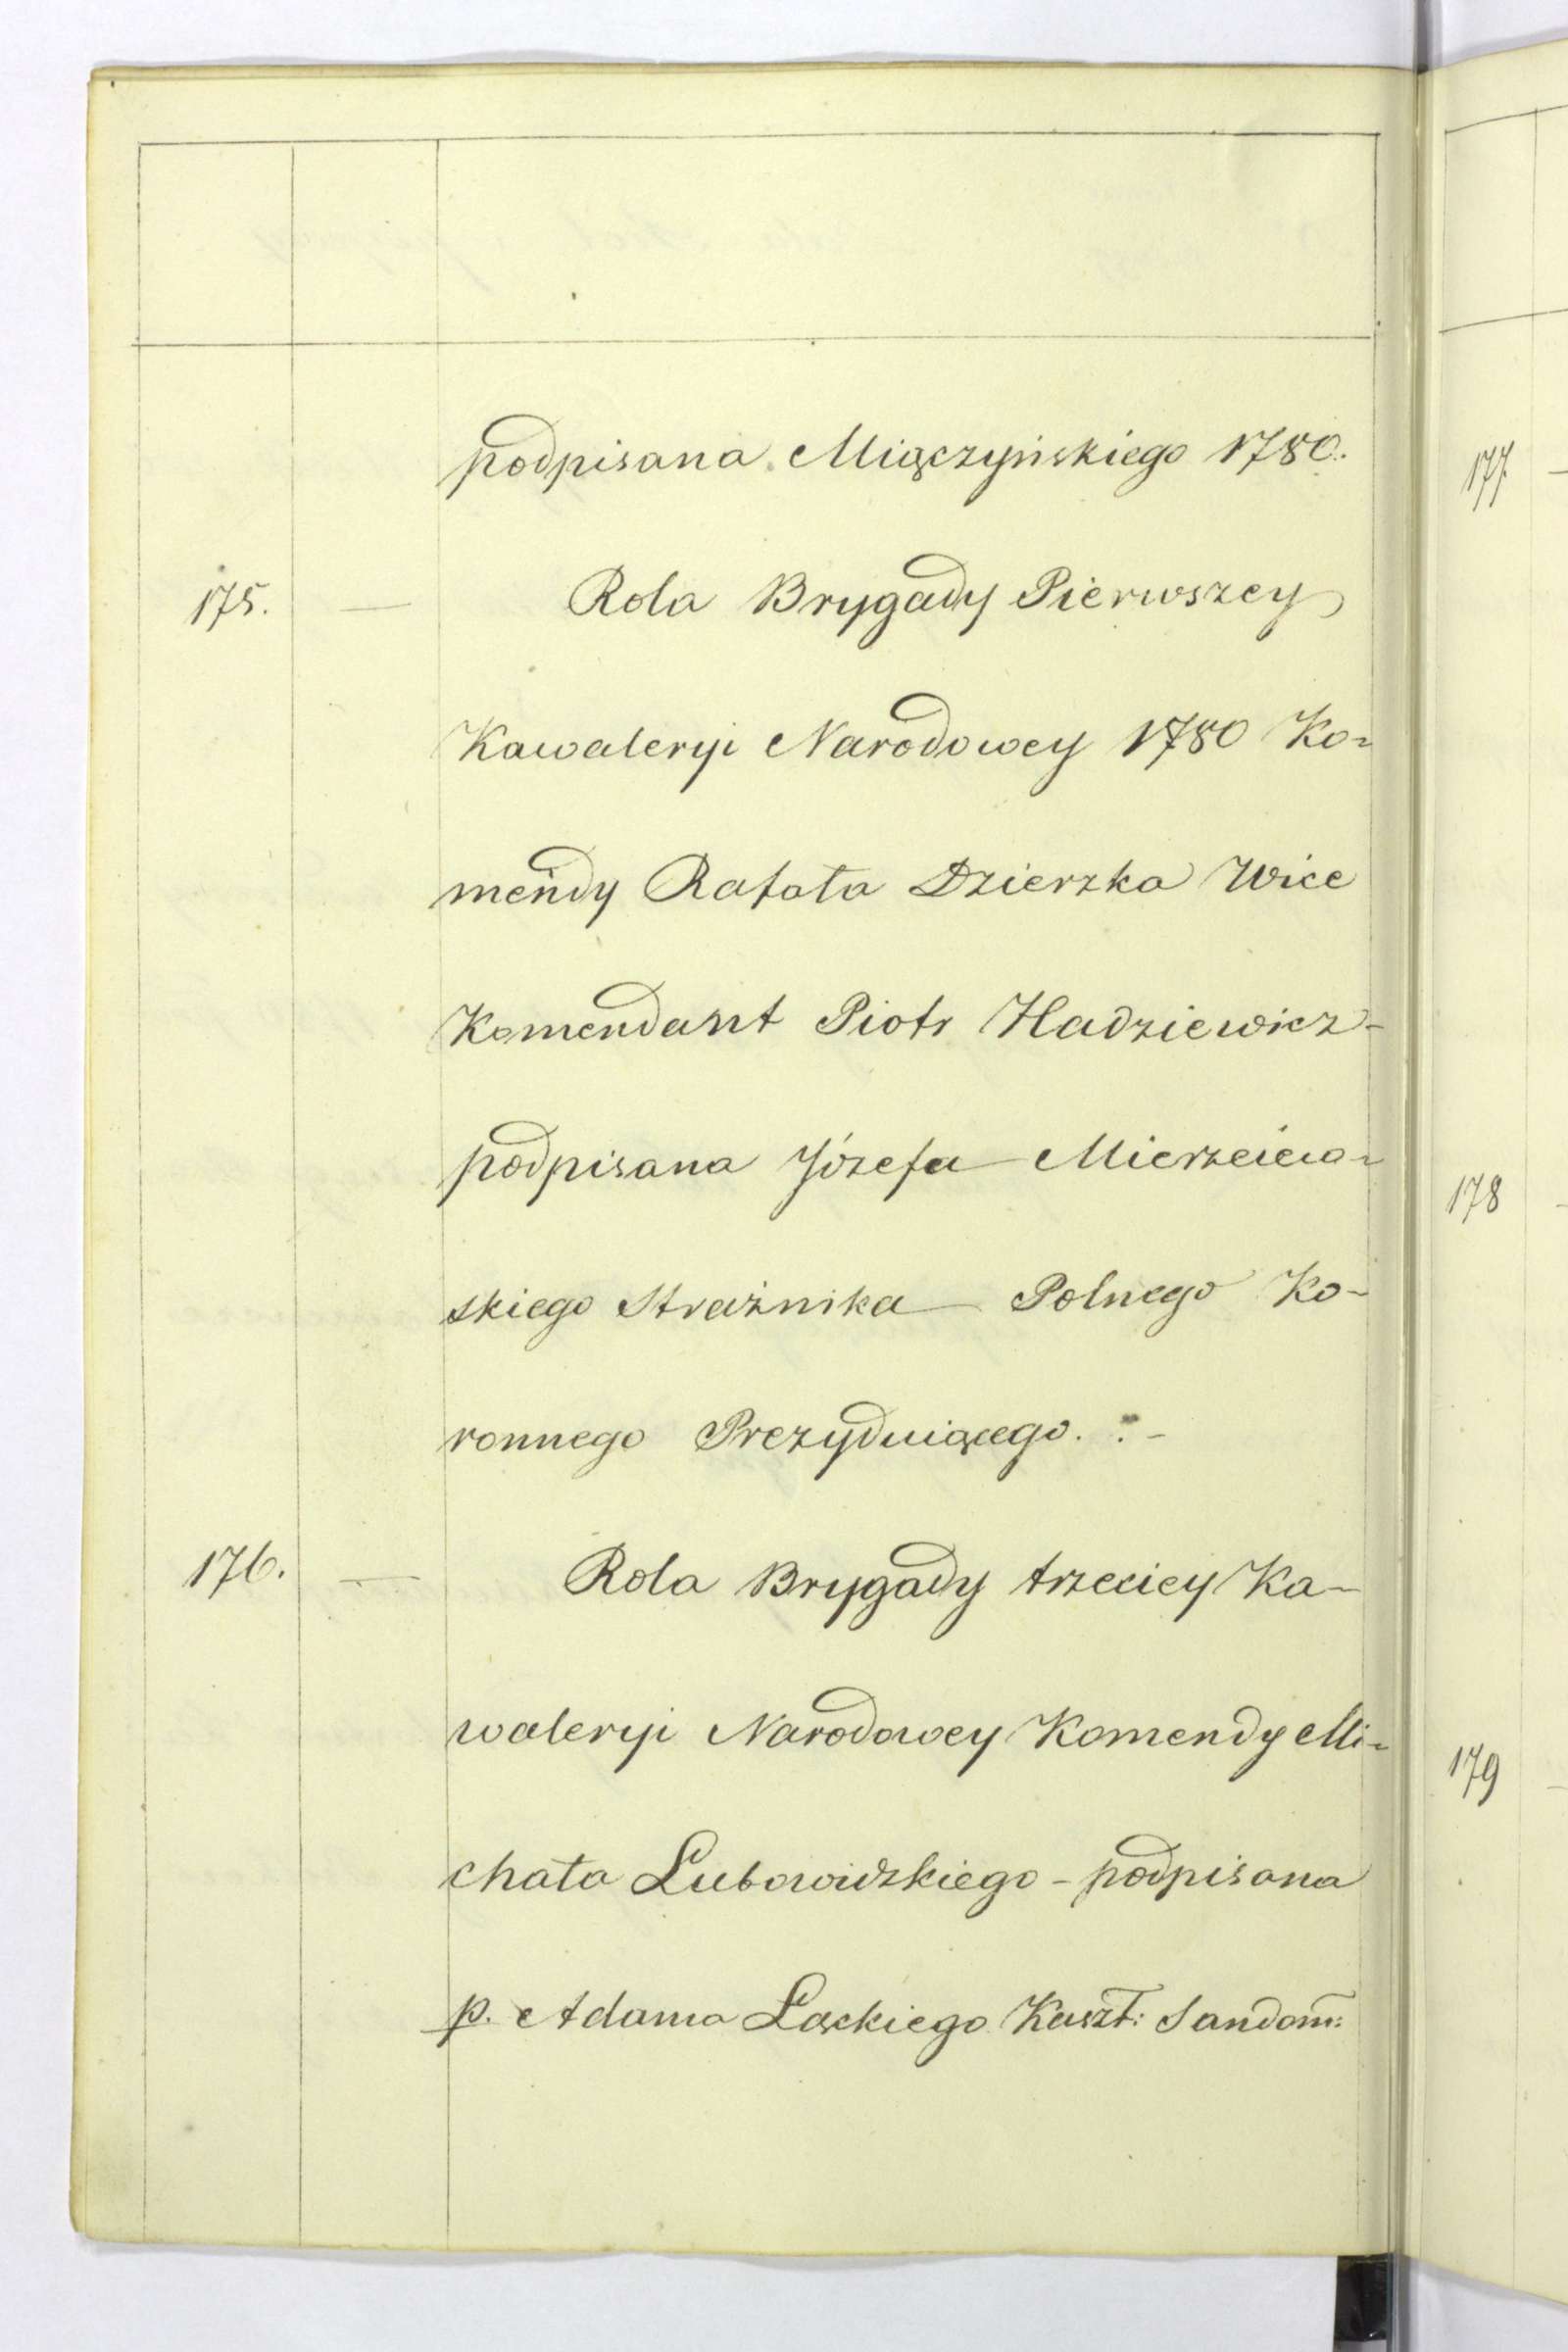 podpisana Miączyńskiego 1780.
175. — Rola Brygady Pierwszey
Kawaleryi Narodowey 1780 Ko=
mendy Rafała Dzierzka Wice
Komendant Piotr Hadziewicz-
podpisana Józefa Mierzeiew-
skiego Strażnika Polnego Ko-
ronnego Prezyduiącego. :-
176. — Rola Brygady trzeciey Ka-
waleryi Narodowey Komendy Mi=
chała Lubowidzkiego - podpisana
p. Adama Łąckiego Kaszt: Sandom:
177 -
178 -
179 -